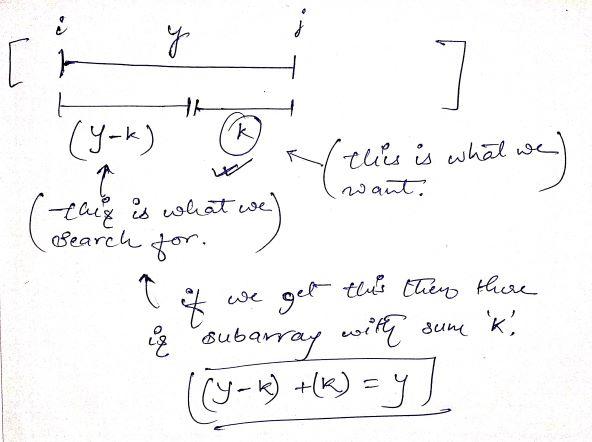 i y j
[ ]
(y-k) (k)
(this is what we
want.)
(this is what we
search for.)
if we get this then there
is subarray with sum 'k'.
((y-k) + (k) = y)